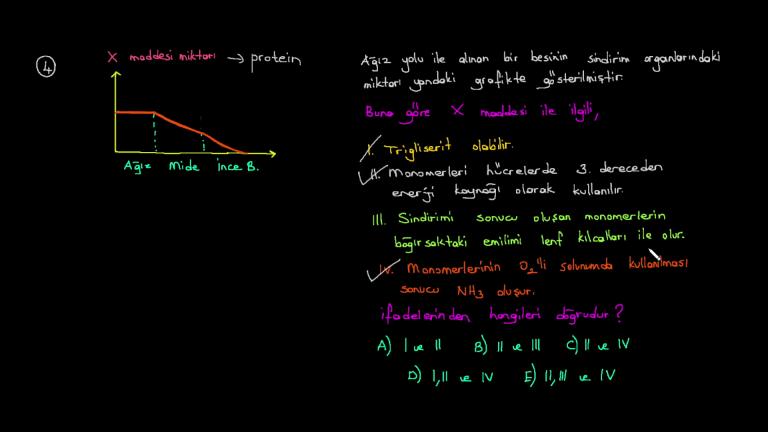 4
X maddesi miktarı → protein
Ağız Mide İnce B.
Ağız yolu ile alınan bir besinin sindirim organlarındaki
miktarı yandaki grafikte gösterilmiştir.
Buna göre X maddesi ile ilgili,
I. Trigliserit olabilir.
II. Monomerleri hücrelerde 3. dereceden
enerji kaynağı olarak kullanılır.
III. Sindirimi sonucu oluşan monomerlerin
bağırsaktaki emilimi lenf kılcalları ile olur.
IV. Monomerlerinin O₂'li solunumda kullanılması
sonucu NH₃ oluşur.
ifadelerinden hangileri doğrudur?
A) I ve II B) II ve III C) II ve IV
D) I, II ve IV E) II, III ve IV